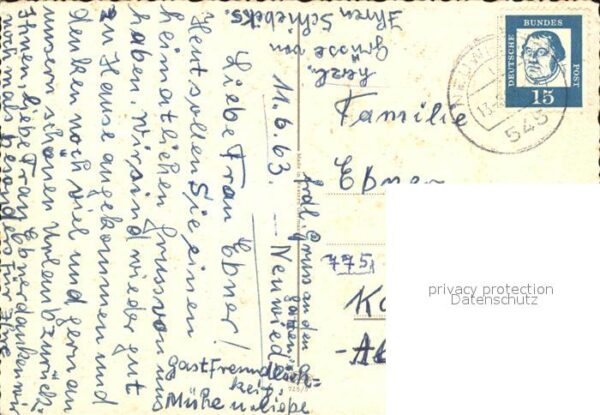 11.6.63. — Neuwied
Liebe Frau Ebner!
Heut sollen Sie einen
heimatlichen Gruss von uns
haben. Wir sind wieder gut
zu Hause angekommen und
denken noch viel und gern an
unsern schönen Urlaub zurück.
Ihnen, liebe Frau Ebner danken wir
noch mals besonders für Ihre
Gastfreundlich-
keit,
Mühe u. liebe
hdl. Gruss an den
ganzen
Herzl.
Grüsse von
Ihren Schiebecks.
Familie
Ebner
775
Ko
-Al
DEUTSCHE
BUNDES
POST
15
13.
545
privacy protection
Datenschutz